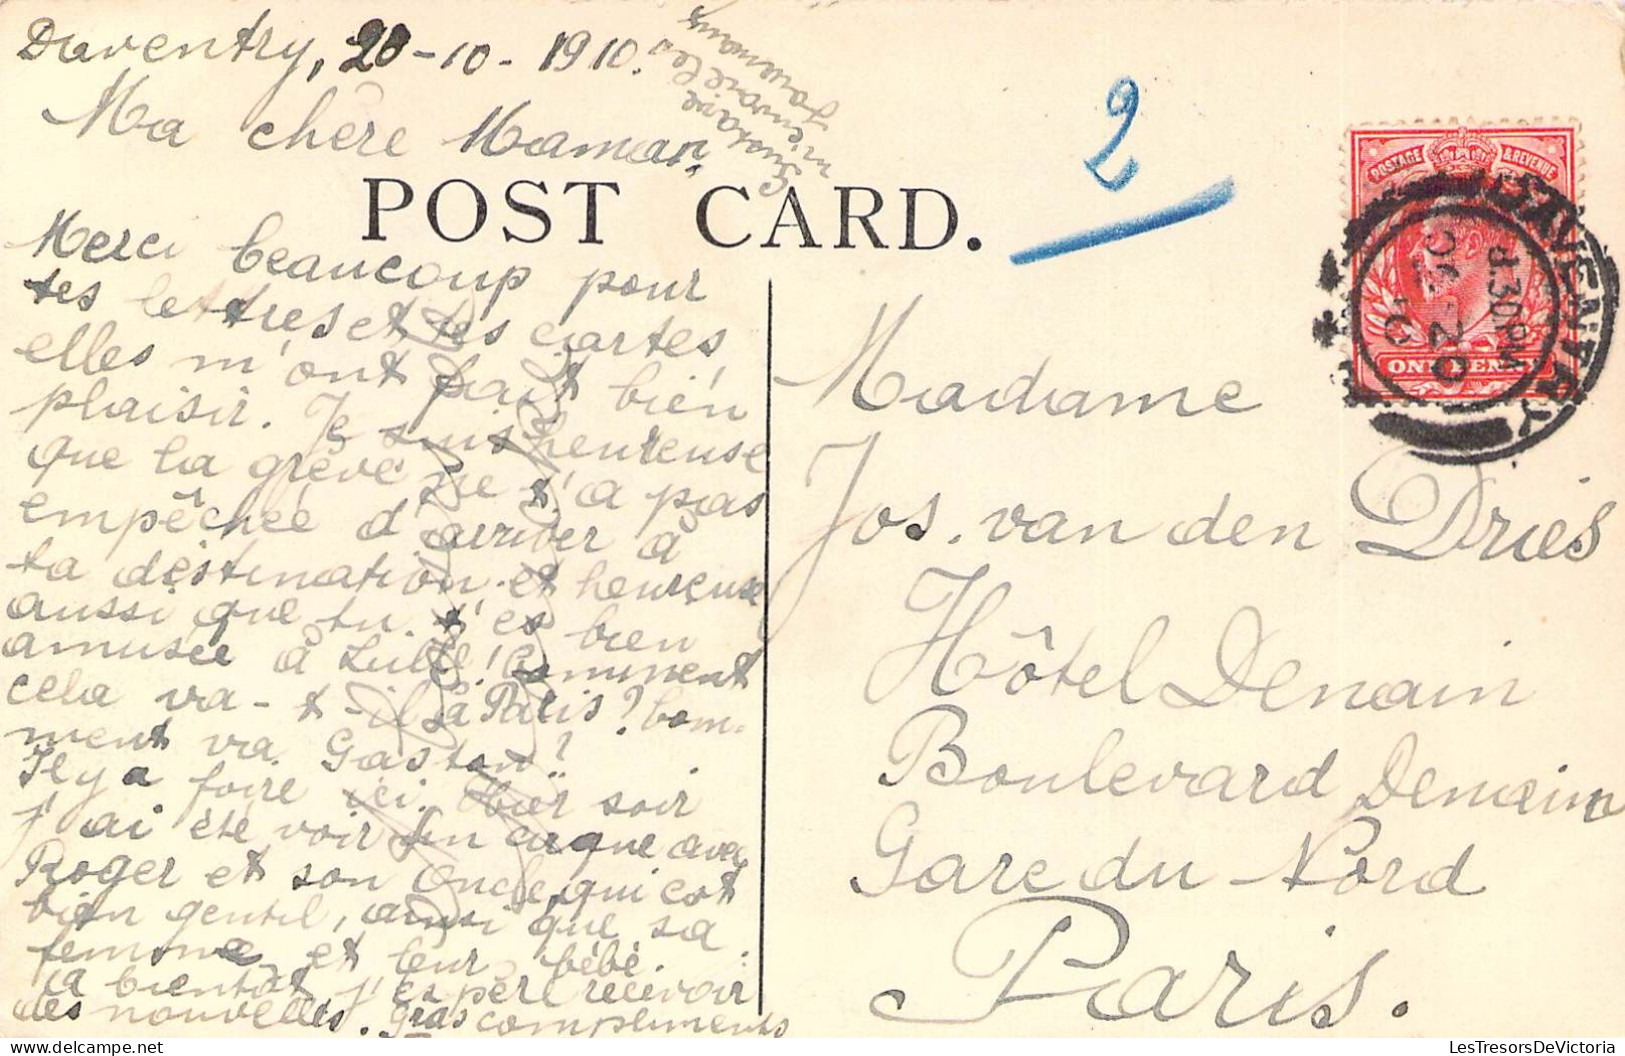 Daventry, 20-10-1910.
Ma chère Maman,
POST CARD.
2
POSTAGE & REVENUE
ONE PENNY
DAVENTRY
8.30PM
OC 20
10
Merci beaucoup pour
tes lettres et tes cartes,
elles m'ont fait bien
plaisir. Je suis heureuse
que la grève ne t'a pas
empêchée d'arriver à
ta déstination et heureuse
aussi que tu t'es bien
amusée à Lille! Comment
cela va-t-il à Paris? Com-
ment va Gaston?
Il y a foire ici. Hier soir
j'ai été voir un cirque avec
Roger et son oncle, qui est
bien gentil, ainsi que sa
femme, et leur bébé.
A bientôt j'espère recevoir
des nouvelles. Gros compliments
Madame
Jos. van den Dries
Hôtel Denain
Boulevard Denain
Gare du Nord
Paris.
LesTresorsDeVictoria